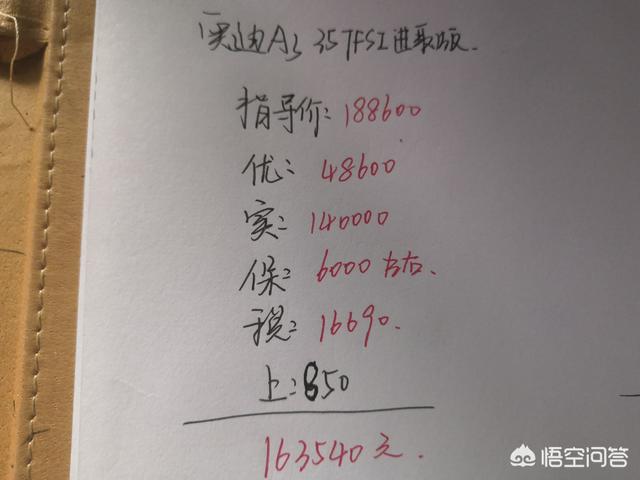 奥迪A3 35TFSI进取版.
指导价: 188600
优: 48600
实: 140000
保: 6000左右.
税: 16690.
上: 850
163540元.
悟空问答